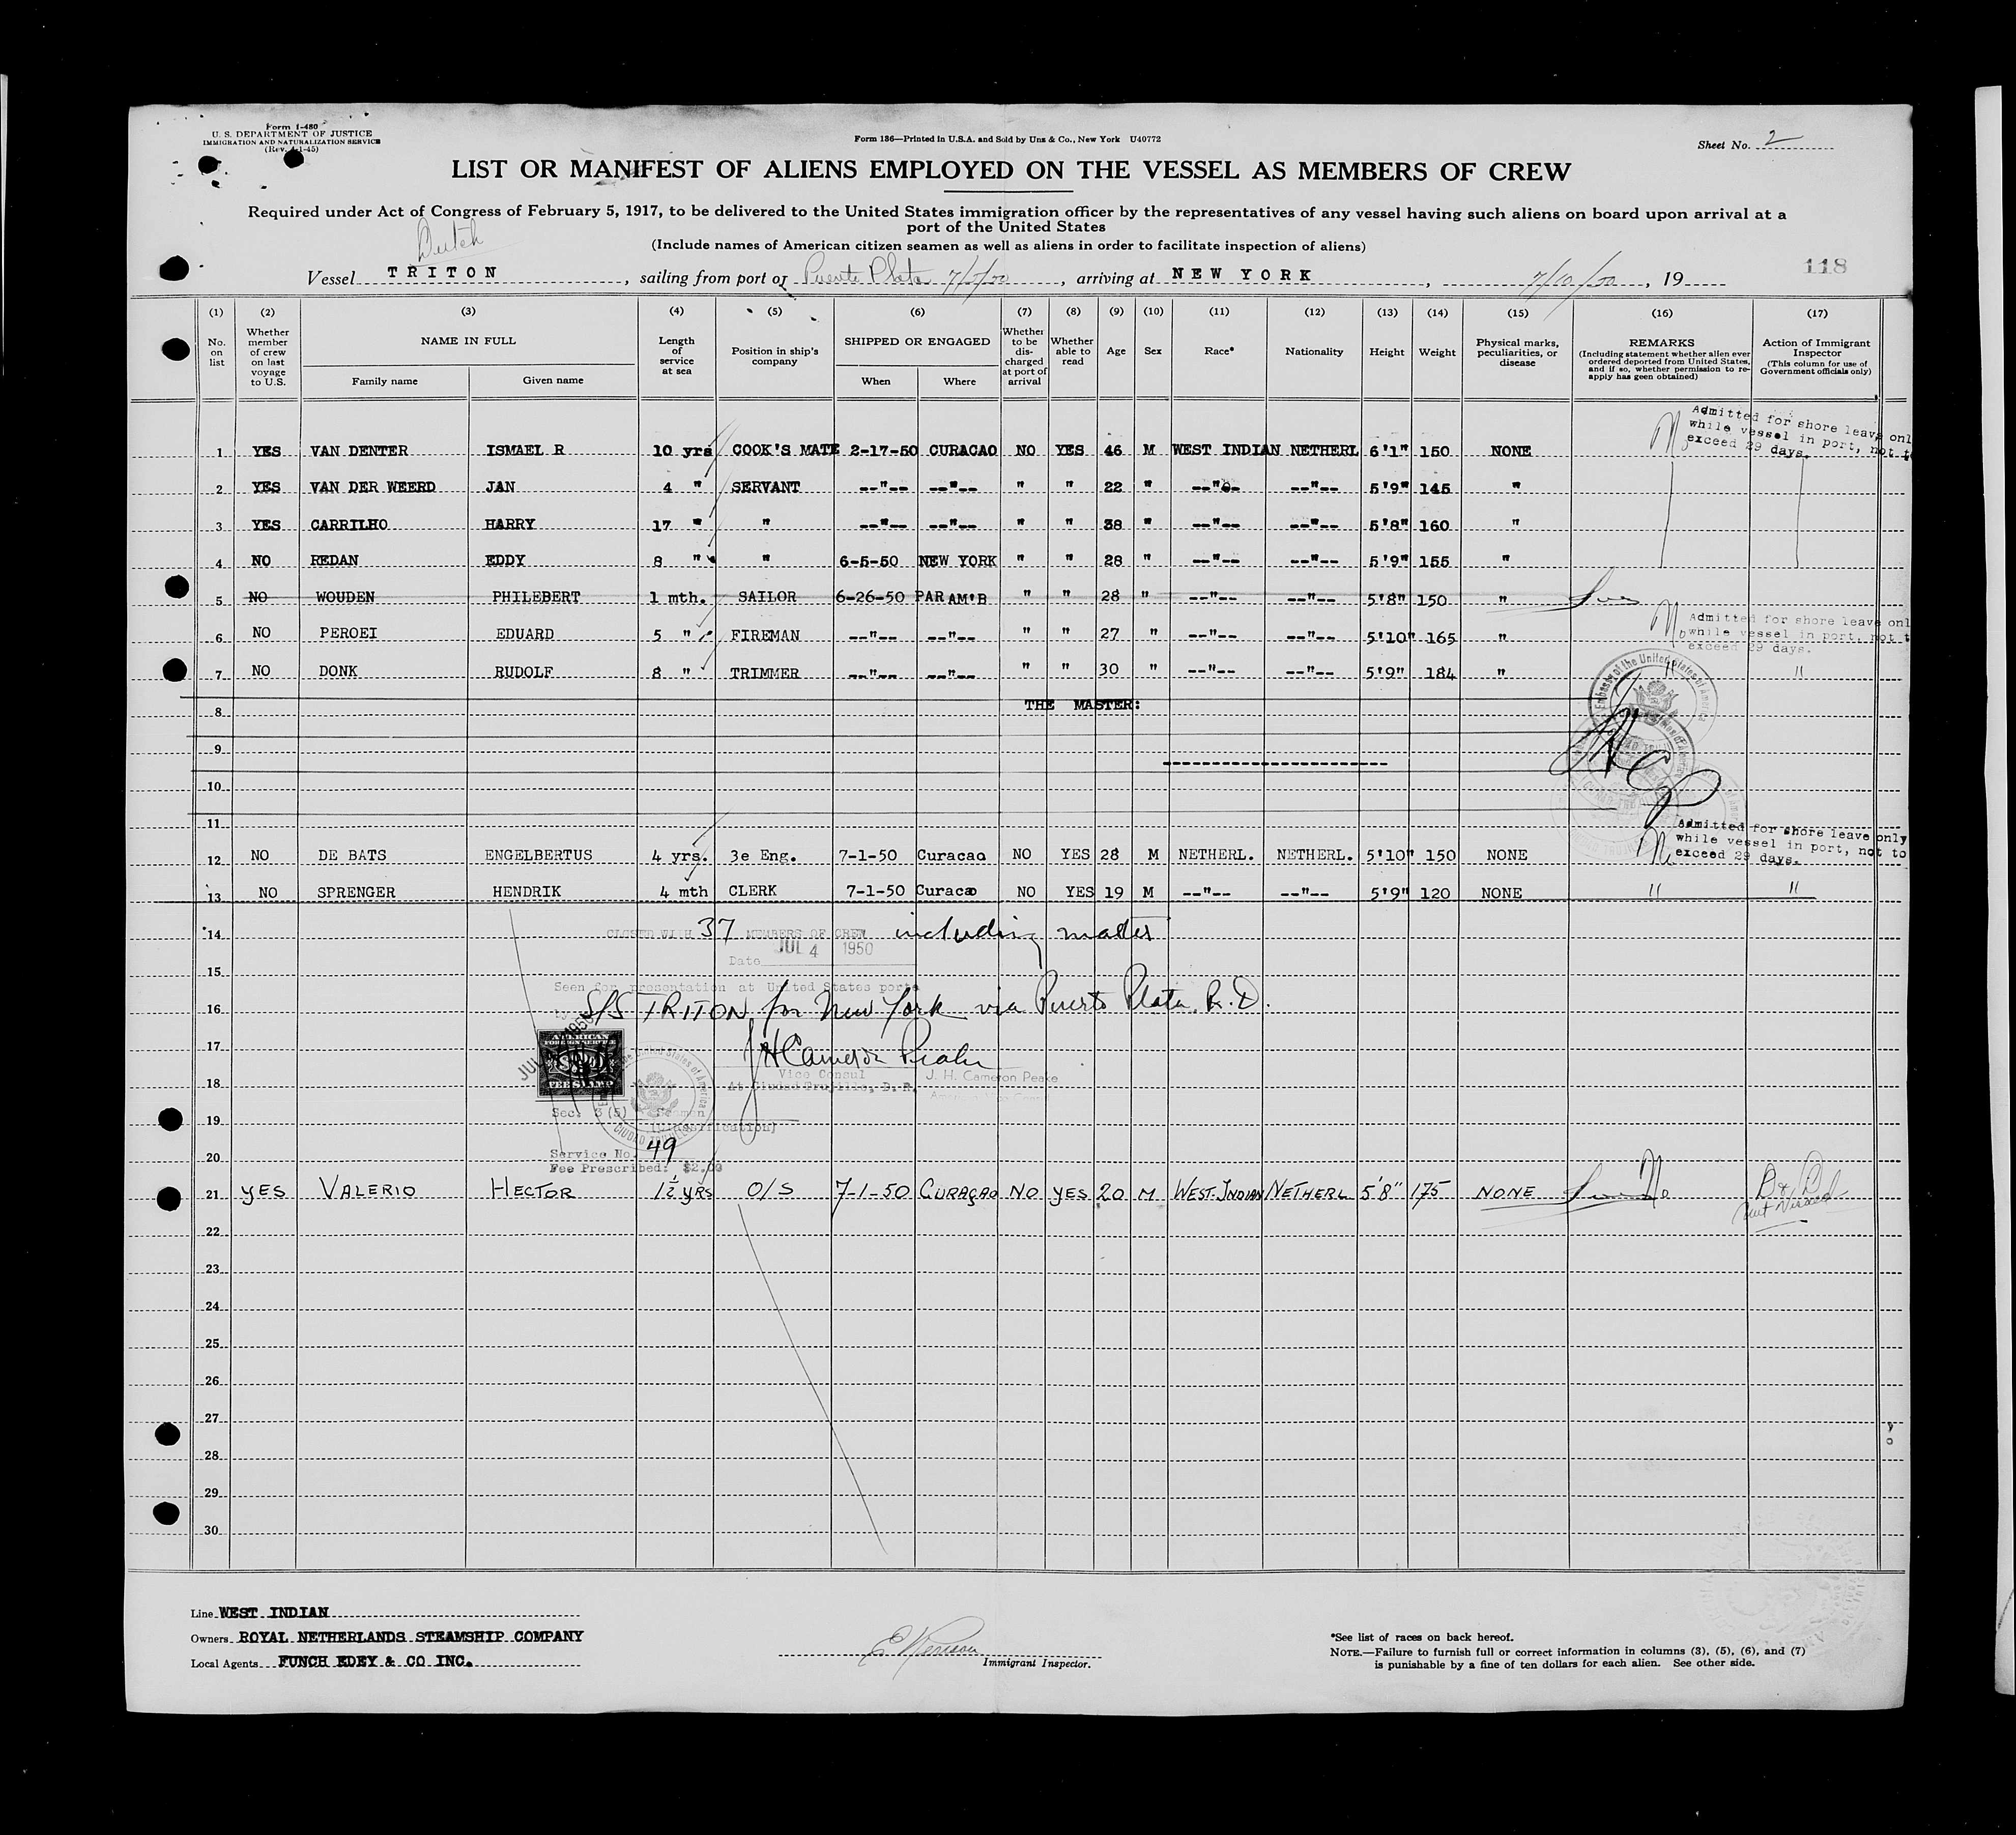 Form I-480
U. S. DEPARTMENT OF JUSTICE
IMMIGRATION AND NATURALIZATION SERVICE
(Rev. 4-1-45)
Form 136—Printed in U.S.A. and Sold by Unz & Co., New York U40772
Sheet No. 2
LIST OR MANIFEST OF ALIENS EMPLOYED ON THE VESSEL AS MEMBERS OF CREW
Required under Act of Congress of February 5, 1917, to be delivered to the United States immigration officer by the representatives of any vessel having such aliens on board upon arrival at a
port of the United States
(Include names of American citizen seamen as well as aliens in order to facilitate inspection of aliens)
Dutch
Vessel TRITON, sailing from port of Puerto Plata 7/5/50, arriving at NEW YORK, 7/10/50, 19
118
(1) (2) (3) (4) (5) (6) (7) (8) (9) (10) (11) (12) (13) (14) (15) (16) (17)
No. on list
Whether member of crew on last voyage to U.S.
NAME IN FULL
Family name
Given name
Length of service at sea
Position in ship's company
SHIPPED OR ENGAGED
When
Where
Whether to be discharged at port of arrival
Whether able to read
Age
Sex
Race*
Nationality
Height
Weight
Physical marks, peculiarities, or disease
REMARKS
(Including statement whether alien ever ordered deported from United States, and if so, whether permission to re-apply has geen obtained)
Action of Immigrant Inspector
(This column for use of Government officials only)
1 YES VAN DENTER ISMAEL R 10 yrs COOK'S MATE 2-17-50 CURACAO NO YES 46 M WEST INDIAN NETHERL 6'1" 150 NONE
Admitted for shore leave onl
while vessel in port, not t
exceed 29 days.
2 YES VAN DER WEERD JAN 4 " SERVANT --"-- --"-- " " 22 " --"-- --"-- 5'9" 145 "
3 YES CARRILHO HARRY 17 " " --"-- --"-- " " 38 " --"-- --"-- 5'8" 160 "
4 NO REDAN EDDY 8 " " 6-5-50 NEW YORK " " 28 " --"-- --"-- 5'9" 155 "
5 NO WOUDEN PHILEBERT 1 mth. SAILOR 6-26-50 PARAM'B " " 28 " --"-- --"-- 5'8" 150 "
6 NO PEROEI EDUARD 5 " FIREMAN --"-- --"-- " " 27 " --"-- --"-- 5'10" 165 "
Admitted for shore leave onl
while vessel in port, not t
exceed 29 days.
7 NO DONK RUDOLF 8 " TRIMMER --"-- --"-- " " 30 " --"-- --"-- 5'9" 184 " " "
8 THE MASTER:
9
10
11
12 NO DE BATS ENGELBERTUS 4 yrs. 3e Eng. 7-1-50 Curacao NO YES 28 M NETHERL. NETHERL. 5'10" 150 NONE
Admitted for shore leave only
while vessel in port, not to
exceed 29 days.
13 NO SPRENGER HENDRIK 4 mth CLERK 7-1-50 Curacao NO YES 19 M --"-- --"-- 5'9" 120 NONE " "
14 CLOSED WITH 37 MEMBERS OF CREW including master
Date JUL 4 1950
15
Seen for presentation at United States ports
16 S/S TRITON for New York via Puerto Plata. R.D.
17 J H Cameron Peake
AMERICAN FOREIGN SERVICE
FEE STAMP
Vice Consul J. H. Cameron Peake
18 At Ciudad Trujillo, D. R. American Vice Consul
19 Sec. 3 (5) Seamen
[Classification]
20 Service No. 49
Fee Prescribed: $2.00
21 YES VALERIO HECTOR 1½ YRS O/S 7-1-50 CURAÇAO NO YES 20 M WEST-INDIAN NETHERL 5'8" 175 NONE
22
23
24
25
26
27
28
29
30
Line WEST INDIAN
Owners ROYAL NETHERLANDS STEAMSHIP COMPANY
Local Agents FUNCH EDEY & CO INC.
Immigrant Inspector.
*See list of races on back hereof.
NOTE.—Failure to furnish full or correct information in columns (3), (5), (6), and (7)
is punishable by a fine of ten dollars for each alien. See other side.